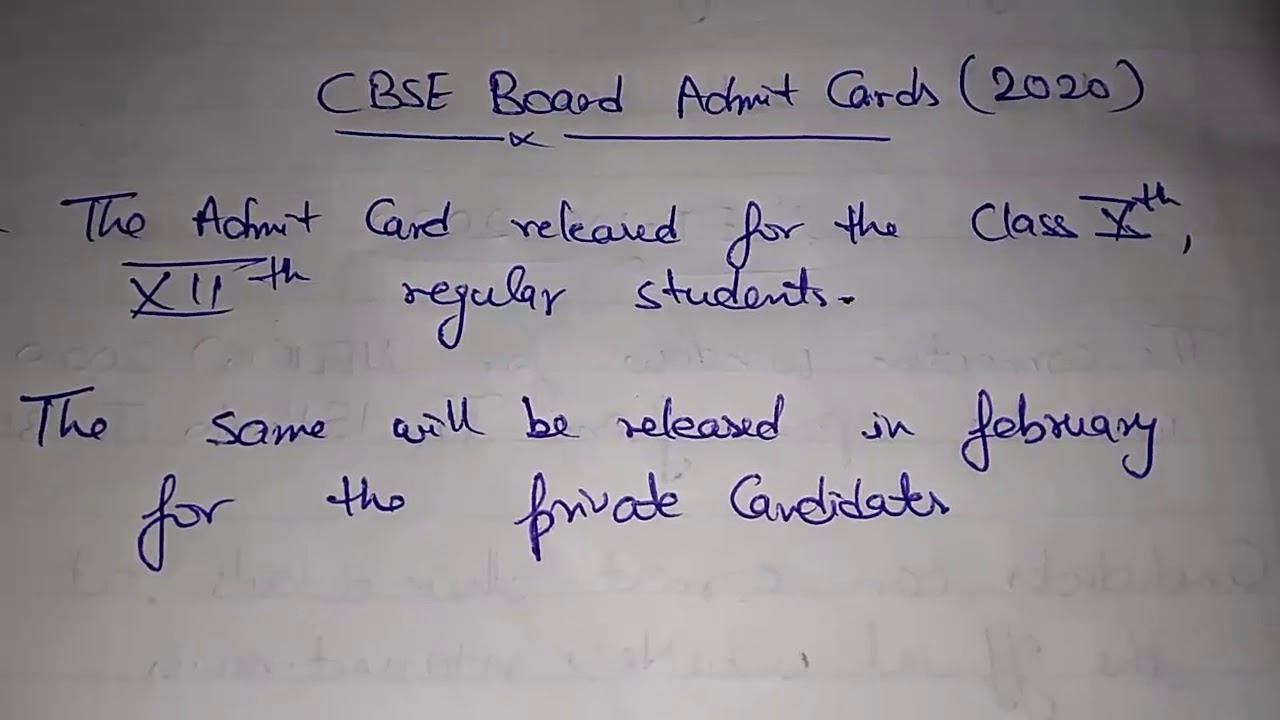 CBSE Board Admit Cards (2020)
The Admit Card released for the Class Xth,
XIIth regular students.
The same will be released in february
for the private Candidates